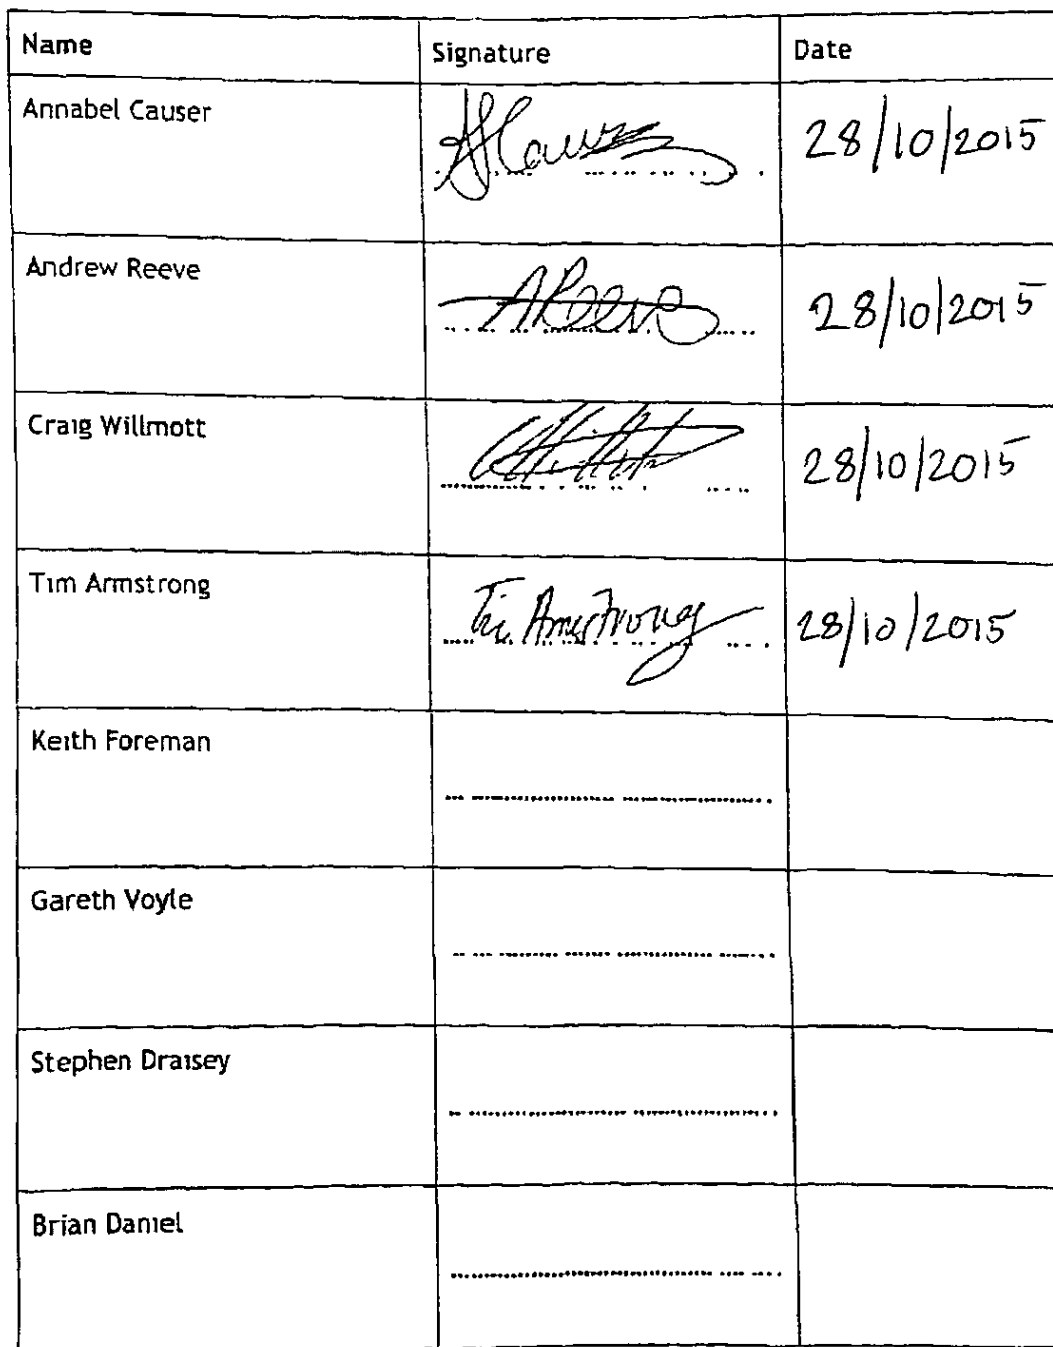 Name Signature Date
Annabel Causer AJCauser 28/10/2015
Andrew Reeve AReeve 28/10/2015
Craig Willmott 28/10/2015
Tim Armstrong Tim Armstrong 28/10/2015
Keith Foreman
Gareth Voyle
Stephen Draisey
Brian Daniel